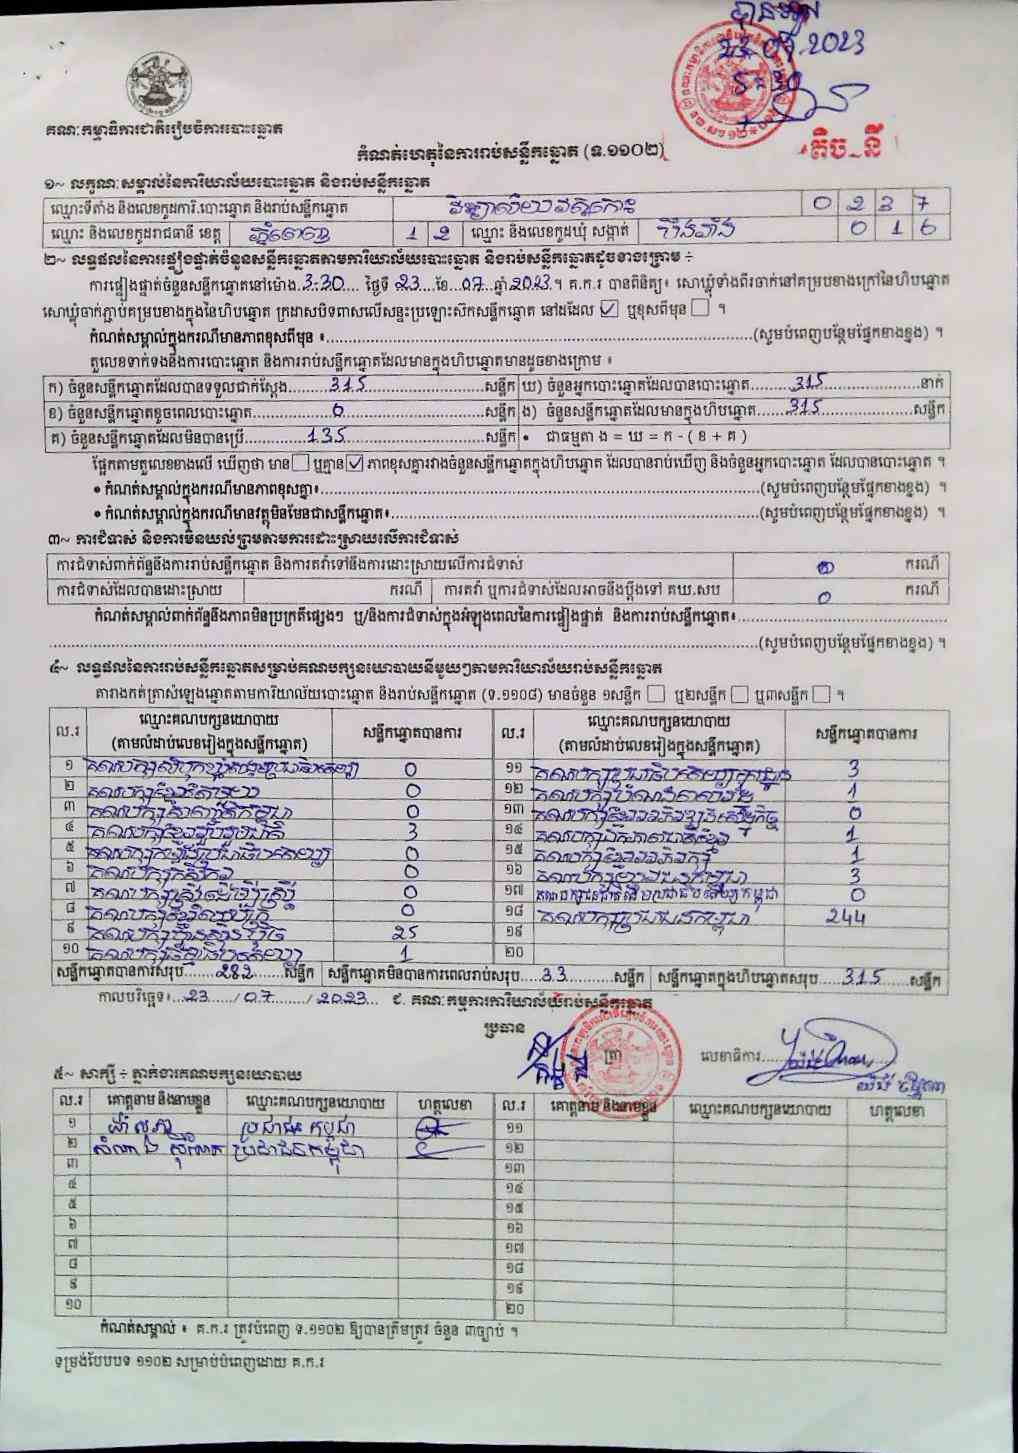 បានឃើញ
23.07.2023
គណៈកម្មាធិការជាតិរៀបចំការបោះឆ្នោត
កំណត់ហេតុនៃការរាប់សន្លឹកឆ្នោត (ទ.១១០២)
១~ លក្ខណៈសម្គាល់នៃការិយាល័យបោះឆ្នោត និងរាប់សន្លឹកឆ្នោត
ឈ្មោះទីតាំង និងលេខកូដការិ.បោះឆ្នោត និងរាប់សន្លឹកឆ្នោត វិទ្យាល័យវត្តកោះ 0 2 3 7
ឈ្មោះ និងលេខកូដរាជធានី ខេត្ត ភ្នំពេញ 1 2 ឈ្មោះ និងលេខកូដឃុំ សង្កាត់ 0 1 6
២~ លទ្ធផលនៃការផ្ទៀងផ្ទាត់ចំនួនសន្លឹកឆ្នោតតាមការិយាល័យបោះឆ្នោត និងរាប់សន្លឹកឆ្នោតដូចខាងក្រោម ÷
ការផ្ទៀងផ្ទាត់ចំនួនសន្លឹកឆ្នោតនៅម៉ោង 3:30 ថ្ងៃទី 23 ខែ 07 ឆ្នាំ 2023។ គ.ក.រ បានពិនិត្យ៖ សោឃ្លុំទាំងពីរចាក់នៅគម្របខាងក្រៅនៃហិបឆ្នោត
សោឃ្លុំចាក់ភ្ជាប់គម្របខាងក្នុងនៃហិបឆ្នោត ក្រដាសបិទពាសលើសន្ទះប្រឡោះសឹកសន្លឹកឆ្នោត នៅដដែល ☑ ឬខុសពីមុន ☐ ។
កំណត់សម្គាល់ក្នុងករណីមានភាពខុសពីមុន ៖ (សូមបំពេញបន្ថែមផ្នែកខាងខ្នង) ។
តួលេខទាក់ទងនឹងការបោះឆ្នោត និងការរាប់សន្លឹកឆ្នោតដែលមានក្នុងហិបឆ្នោតមានដូចខាងក្រោម ៖
ក) ចំនួនសន្លឹកឆ្នោតដែលបានទទួលជាក់ស្តែង 315 សន្លឹក ឃ) ចំនួនអ្នកបោះឆ្នោតដែលបានបោះឆ្នោត 315 នាក់
ខ) ចំនួនសន្លឹកឆ្នោតខូចពេលបោះឆ្នោត 0 សន្លឹក ង) ចំនួនសន្លឹកឆ្នោតដែលមានក្នុងហិបឆ្នោត 315 សន្លឹក
គ) ចំនួនសន្លឹកឆ្នោតដែលមិនបានប្រើ 135 សន្លឹក • ជាធម្មតា ង = ឃ = ក - ( ខ + គ )
ផ្អែកតាមតួលេខខាងលើ ឃើញថា មាន ☐ ឬគ្មាន ☑ ភាពខុសគ្នារវាងចំនួនសន្លឹកឆ្នោតក្នុងហិបឆ្នោត ដែលបានរាប់ឃើញ និងចំនួនអ្នកបោះឆ្នោត ដែលបានបោះឆ្នោត ។
• កំណត់សម្គាល់ក្នុងករណីមានភាពខុសគ្នា៖ (សូមបំពេញបន្ថែមផ្នែកខាងខ្នង) ។
• កំណត់សម្គាល់ក្នុងករណីមានវត្ថុមិនមែនជាសន្លឹកឆ្នោត៖ (សូមបំពេញបន្ថែមផ្នែកខាងខ្នង) ។
៣~ ការជំទាស់ និងការមិនយល់ព្រមតាមការដោះស្រាយលើការជំទាស់
ការជំទាស់ពាក់ព័ន្ធនឹងការរាប់សន្លឹកឆ្នោត និងការតវ៉ាទៅនឹងការដោះស្រាយលើការជំទាស់ 0 ករណី
ការជំទាស់ដែលបានដោះស្រាយ ករណី ការតវ៉ា ឬការជំទាស់ដែលអាចនឹងប្តឹងទៅ គឃ.សប 0 ករណី
កំណត់សម្គាល់ពាក់ព័ន្ធនឹងភាពមិនប្រក្រតីផ្សេងៗ ឬ/និងការជំទាស់ក្នុងអំឡុងពេលនៃការផ្ទៀងផ្ទាត់ និងការរាប់សន្លឹកឆ្នោត៖
(សូមបំពេញបន្ថែមផ្នែកខាងខ្នង) ។
៤~ លទ្ធផលនៃការរាប់សន្លឹកឆ្នោតសម្រាប់គណបក្សនយោបាយនីមួយៗតាមការិយាល័យរាប់សន្លឹកឆ្នោត
តារាងកត់ត្រាសំឡេងឆ្នោតតាមការិយាល័យបោះឆ្នោត និងរាប់សន្លឹកឆ្នោត (ទ.១១០៨) មានចំនួន ១សន្លឹក ☐ ឬ២សន្លឹក ☐ ឬ៣សន្លឹក ☐ ។
ល.រ ឈ្មោះគណបក្សនយោបាយ (តាមលំដាប់លេខរៀងក្នុងសន្លឹកឆ្នោត) សន្លឹកឆ្នោតបានការ ល.រ ឈ្មោះគណបក្សនយោបាយ (តាមលំដាប់លេខរៀងក្នុងសន្លឹកឆ្នោត) សន្លឹកឆ្នោតបានការ
១ 0 ១១ 3
២ 0 ១២ 1
៣ 0 ១៣ 0
៤ គណបក្សខ្មែររួបរួមជាតិ 3 ១៤ គណបក្សឯកភាពជាតិខ្មែរ 1
៥ 0 ១៥ 1
៦ គណបក្សកសិករ 0 ១៦ 3
៧ គណបក្សស្ត្រីដើម្បីស្ត្រី 0 ១៧ 0
៨ 0 ១៨ គណបក្សប្រជាជនកម្ពុជា 244
៩ គណបក្សហ៊្វុនស៊ិនប៉ិច 25 ១៩
១០ គណបក្សធម្មាធិបតេយ្យ 1 ២០
សន្លឹកឆ្នោតបានការសរុប 282 សន្លឹក សន្លឹកឆ្នោតមិនបានការពេលរាប់សរុប 33 សន្លឹក សន្លឹកឆ្នោតក្នុងហិបឆ្នោតសរុប 315 សន្លឹក
កាលបរិច្ឆេទ៖ 23 / 07 / 2023 ជ. គណៈកម្មការការិយាល័យរាប់សន្លឹកឆ្នោត
ប្រធាន
ត្រា លេខាធិការ
៥~ សាក្សី ÷ ភ្នាក់ងារគណបក្សនយោបាយ
ល.រ គោត្តនាម និងនាមខ្លួន ឈ្មោះគណបក្សនយោបាយ ហត្ថលេខា ល.រ គោត្តនាម និងនាមខ្លួន ឈ្មោះគណបក្សនយោបាយ ហត្ថលេខា
១ ប្រជាជន កម្ពុជា ១១
២ ប្រជាជនកម្ពុជា ១២
៣ ១៣
៤ ១៤
៥ ១៥
៦ ១៦
៧ ១៧
៨ ១៨
៩ ១៩
១០ ២០
កំណត់សម្គាល់ ៖ គ.ក.រ ត្រូវបំពេញ ទ.១១០២ ឱ្យបានត្រឹមត្រូវ ចំនួន ៣ច្បាប់ ។
ទម្រង់បែបបទ ១១០២ សម្រាប់បំពេញដោយ គ.ក.រ